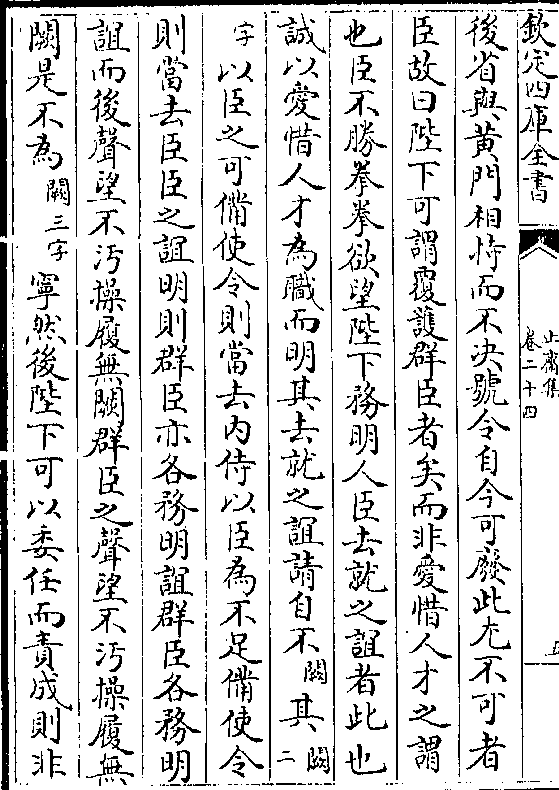 欽定四庫全書
止齋集
卷二十四
五
後省與黄門相恃而不決號令自今可廢此尤不可者
臣故曰陛下可謂覆護群臣者矣而非愛惜人才之謂
也臣不勝拳拳欲望陛下務明人臣去就之誼者此也
誠以愛惜人才為職而明其去就之誼請自不闕其闕二
字以臣之可備使令則當去内侍以臣為不足備使令
則當去臣臣之誼明則群臣亦各務明誼群臣各務明
誼而後聲望不汚操履無闕群臣之聲望不汚操履無
闕是不為闕三字寧然後陛下可以委任而責成則非